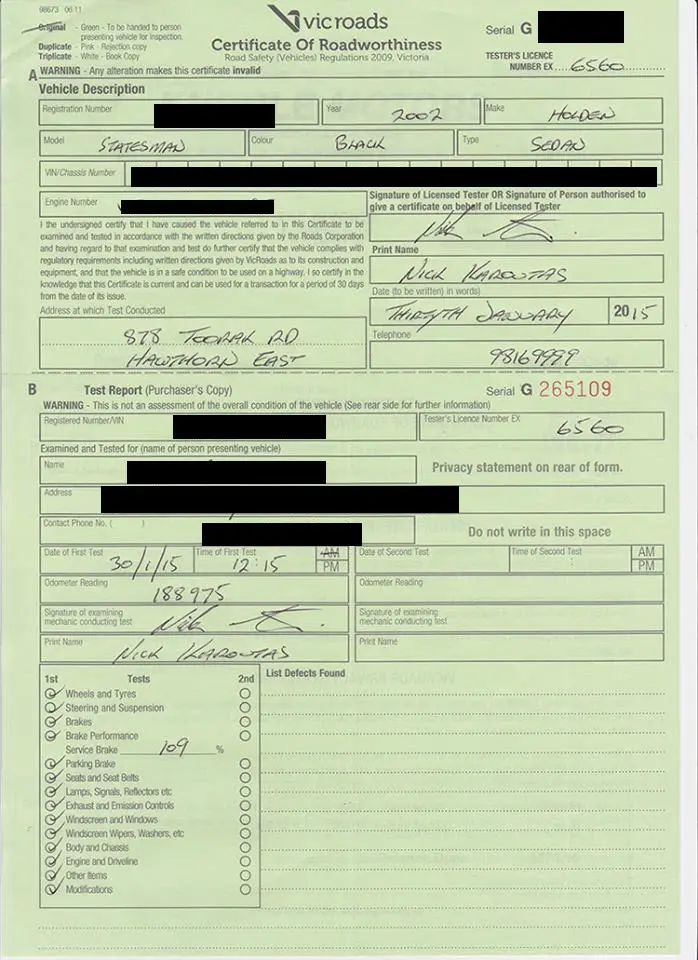 98673 06 11
Original - Green - To be handed to person
presenting vehicle for inspection.
Duplicate - Pink - Rejection copy
Triplicate - White - Book Copy
vic roads
Certificate Of Roadworthiness
Road Safety (Vehicles) Regulations 2009, Victoria
Serial G
TESTER'S LICENCE
NUMBER EX 6560
A WARNING - Any alteration makes this certificate invalid
Vehicle Description
Registration Number Year 2002 Make HOLDEN
Model STATESMAN Colour BLACK Type SEDAN
VIN/Chassis Number
Engine Number
Signature of Licensed Tester OR Signature of Person authorised to
give a certificate on behalf of Licensed Tester
I the undersigned certify that I have caused the vehicle referred to in this Certificate to be
examined and tested in accordance with the written directions given by the Roads Corporation
and having regard to that examination and test do further certify that the vehicle complies with
regulatory requirements including written directions given by VicRoads as to its construction and
equipment, and that the vehicle is in a safe condition to be used on a highway. I so certify in the
knowledge that this Certificate is current and can be used for a transaction for a period of 30 days
from the date of its issue.
Print Name
NICK KAROUTAS
Date (to be written) in words)
THIRTYTH JANUARY 2015
Address at which Test Conducted
878 TOORAK RD
HAWTHORN EAST
Telephone
98169999
B Test Report (Purchaser's Copy) Serial G 265109
WARNING - This is not an assessment of the overall condition of the vehicle (See rear side for further information)
Registered Number/VIN Tester's Licence Number EX 6560
Examined and Tested for (name of person presenting vehicle)
Name
Privacy statement on rear of form.
Address
Contact Phone No. ( )
Do not write in this space
Date of First Test 30/1/15 Time of First Test 12:15 AM PM
Date of Second Test Time of Second Test : AM PM
Odometer Reading 188975 Odometer Reading
Signature of examining
mechanic conducting test
Signature of examining
mechanic conducting test
Print Name NICK KAROUTAS Print Name
1st Tests 2nd
List Defects Found
Wheels and Tyres
Steering and Suspension
Brakes
Brake Performance
Service Brake 109 %
Parking Brake
Seats and Seat Belts
Lamps, Signals, Reflectors etc
Exhaust and Emission Controls
Windscreen and Windows
Windscreen Wipers, Washers, etc
Body and Chassis
Engine and Driveline
Other Items
Modifications